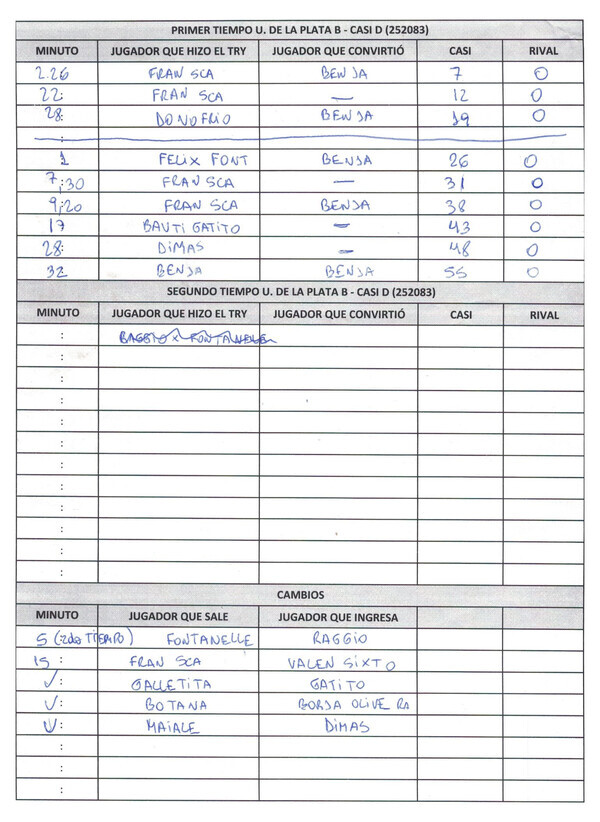 PRIMER TIEMPO U. DE LA PLATA B - CASI D (252083)
MINUTO JUGADOR QUE HIZO EL TRY JUGADOR QUE CONVIRTIÓ CASI RIVAL
2.26 FRAN SCA BENJA 7 0
22: FRAN SCA — 12 0
28: DONOFRIO BENJA 19 0
:
1 FELIX FONT BENJA 26 0
7:30 FRAN SCA — 31 0
9:20 FRAN SCA BENJA 38 0
17 BAUTI GATITO — 43 0
28: DIMAS — 48 0
32 BENJA BENJA 55 0
SEGUNDO TIEMPO U. DE LA PLATA B - CASI D (252083)
MINUTO JUGADOR QUE HIZO EL TRY JUGADOR QUE CONVIRTIÓ CASI RIVAL
: RAGGIO X FONTANELLE
:
:
:
:
:
:
:
:
:
:
:
CAMBIOS
MINUTO JUGADOR QUE SALE JUGADOR QUE INGRESA
5 (2do TIEMPO) FONTANELLE RAGGIO
15: FRAN SCA VALEN SIXTO
✓: GALLETITA GATITO
✓: BOTANA BORDA OLIVERA
✓: MAIALE DIMAS
:
:
: